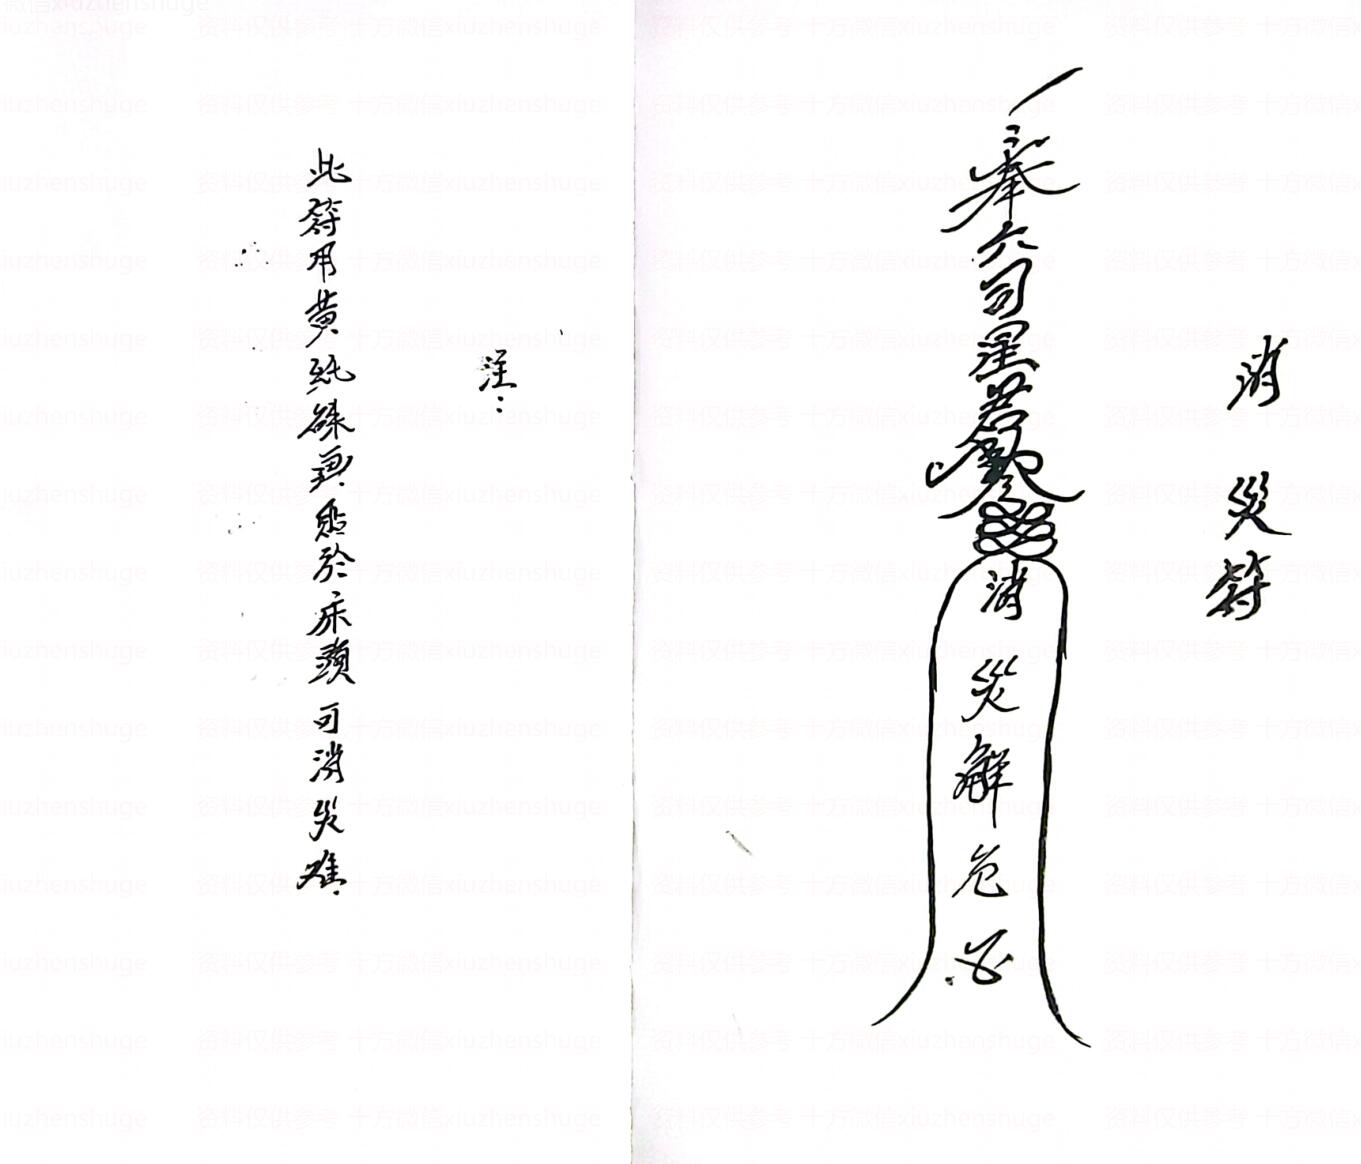 消災符
奉六司星君勅
消災解危
注：
此符用黄纸硃画貼於床頭可消災难
资料仅供参考 十方微信xiuzhenshuge